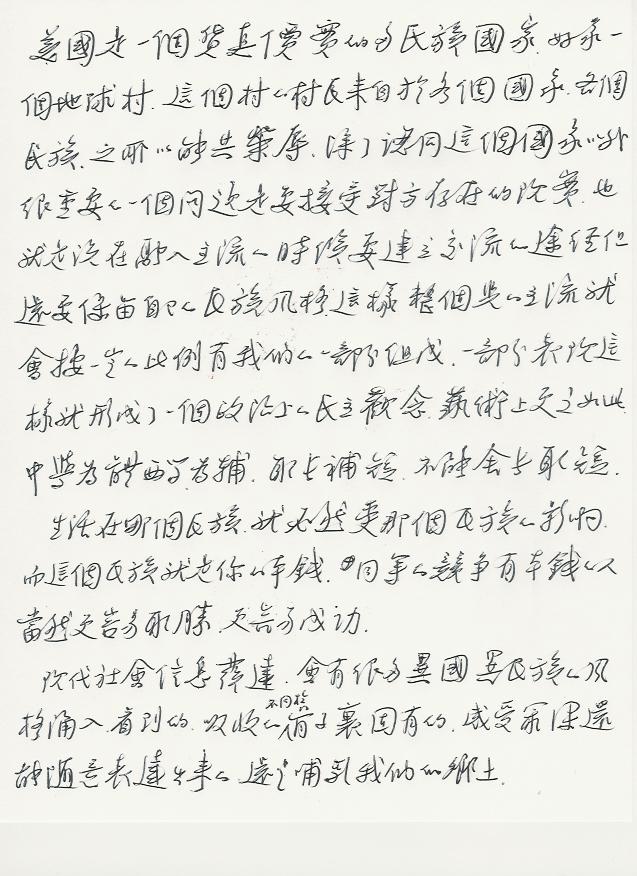 美國是一個貨真價實的多民族國家.好象一
個地球村.這個村的村民來自於各個國家.各個
民族.之所以能共榮辱.除了認同這個國家以外
很重要的一個问題是要接受對方存在的现實.也
就是说在融入主流的時候要建立交流的途徑但
還要保留自己的民族风格這樣整個具的主流就
會按一定的比例有我的的一部分组成.一部分表现這
樣就形成了一個政治上的民主觀念.藝術上更应如此.
中學為體西学為輔.取长補短.不能舍长取短.
生活在那個民族.就必然受那個民族的影响.
而這個民族就是你的本錢.同等的競爭有本錢的人
當然更容易取勝.更容易成功.
现代社會信息發達.會有很多異國異民族的风
格涌入.看到的.吸收的不同於骨子裏固有的.感受不深還
能随意表達出来的.還是哺乳我们的鄉土.